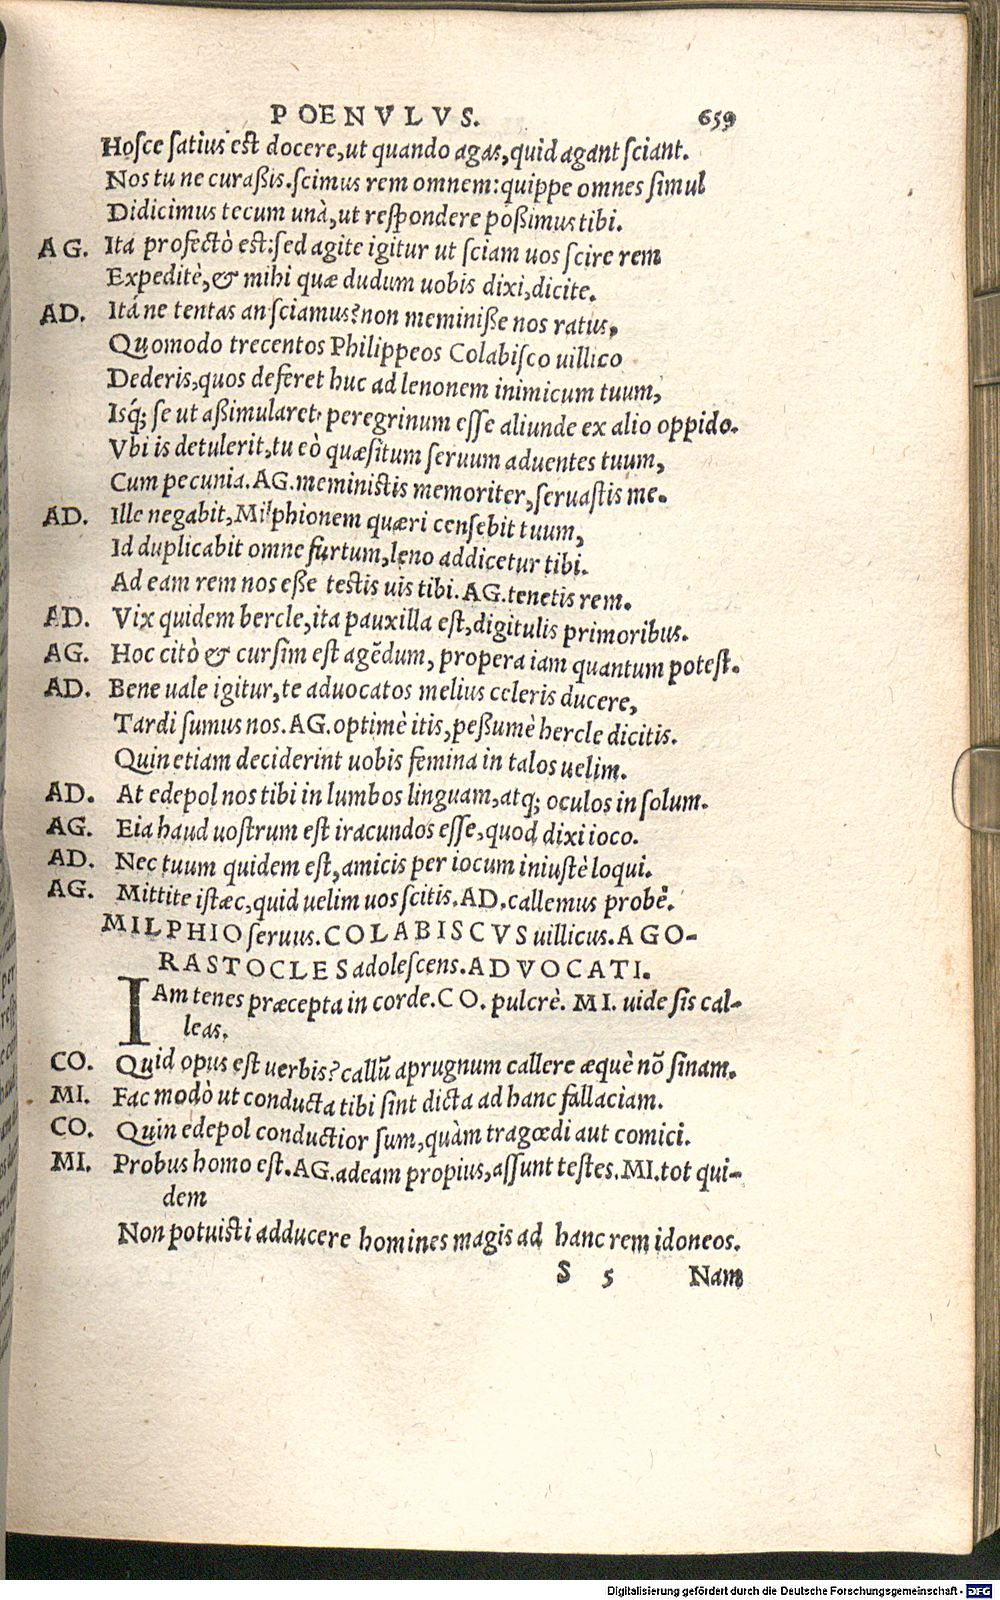 POENVLVS. 659
Hosce satius est docere, ut quando agas, quid agant sciant.
Nos tu ne curaßis. scimus rem omnem: quippe omnes simul
Didicimus tecum unà, ut respondere poßimus tibi.
AG. Ita profectò est: sed agite igitur ut sciam uos scire rem
Expeditè, & mihi quæ dudum uobis dixi, dicite.
AD. Itáne tentas an sciamus? non meminiße nos ratus,
Quomodo trecentos Philippeos Colabisco uillico
Dederis, quos deferet huc ad lenonem inimicum tuum,
Isq́; se ut aßimularet peregrinum esse aliunde ex alio oppido.
Vbi is detulerit, tu eò quæsitum seruum aduentes tuum,
Cum pecunia. AG. meministis memoriter, seruastis me.
AD. Ille negabit, Milphionem quæri censebit tuum,
Id duplicabit omne furtum, leno addicetur tibi.
Ad eam rem nos eße testis uis tibi. AG. tenetis rem.
AD. Vix quidem hercle, ita pauxilla est, digitulis primoribus.
AG. Hoc citò & cursim est agēdum, propera iam quantum potest.
AD. Bene uale igitur, te aduocatos melius celeris ducere,
Tardi sumus nos. AG. optimè itis, peßumè hercle dicitis.
Quin etiam deciderint uobis femina in talos uelim.
AD. At edepol nos tibi in lumbos linguam, atq; oculos in solum.
AG. Eia haud uostrum est iracundos esse, quod dixi ioco.
AD. Nec tuum quidem est, amicis per iocum iniustè loqui.
AG. Mittite istæc, quid uelim uos scitis. AD. callemus probè.
MILPHIO seruus. COLABISCVS uillicus. AGO-
RASTOCLES adolescens. ADVOCATI.
IAm tenes præcepta in corde. CO. pulcrè. MI. uide sis cal-
leas.
CO. Quid opus est uerbis? callū aprugnum callere æquè nō sinam.
MI. Fac modò ut conducta tibi sint dicta ad hanc fallaciam.
CO. Quin edepol conductior sum, quàm tragœdi aut comici.
MI. Probus homo est. AG. adeam propius, assunt testes. MI. tot qui-
dem
Non potuisti adducere homines magis ad hanc rem idoneos.
S 5 Nam
Digitalisierung gefördert durch die Deutsche Forschungsgemeinschaft - DFG